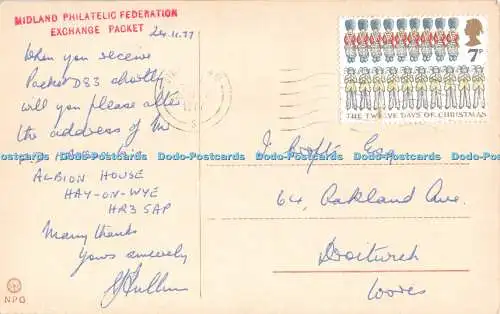 MIDLAND PHILATELIC FEDERATION
EXCHANGE PACKET
24.11.77
When you receive
Packet D83 shortly
will you please alter
the address of Mr
Dodo-Postcards Dodo-Postcards Dodo-Postcards Dodo-Postcards Dodo-Postcards Dodo-Postcards
ALBION HOUSE
HAY-ON-WYE
HR3 5AP
Many thanks
Yours sincerely
NPG
7P
THE TWELVE DAYS OF CHRISTMAS
J. Esq
64, Oakland Ave.
Droitwich
Worcs